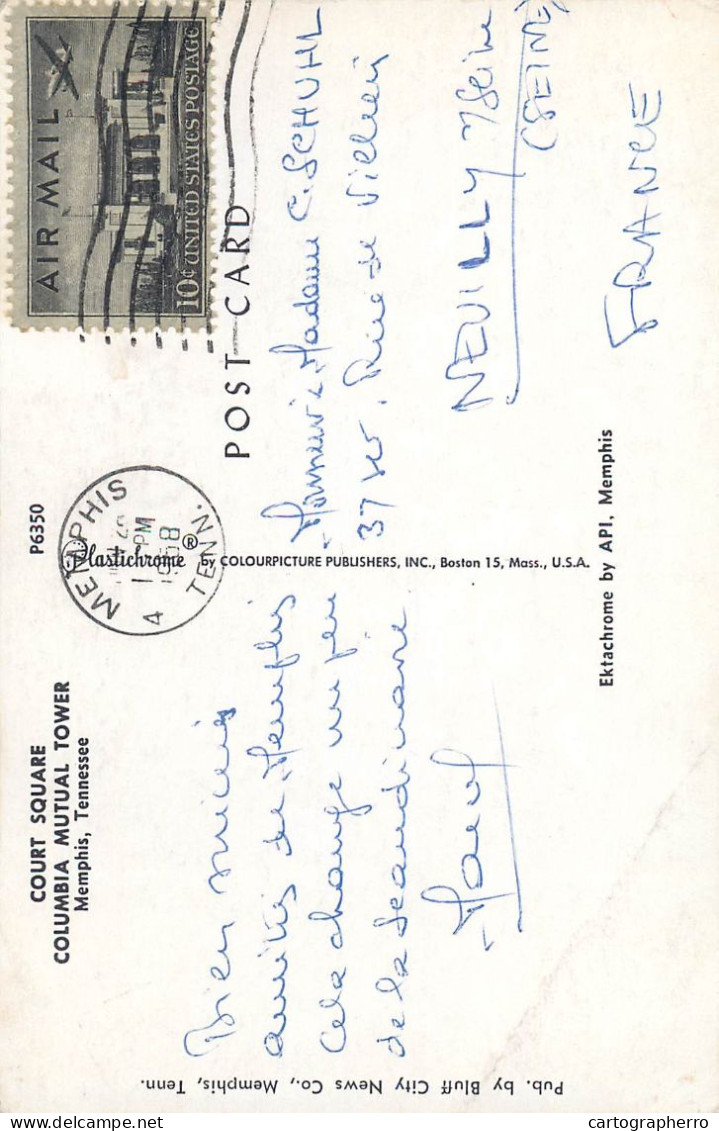 COURT SQUARE
COLUMBIA MUTUAL TOWER
Memphis, Tennessee
P6350
Bien
amitiés de Memphis
Cela change un peu
de la Scandinavie
Pub. by Bluff City News Co., Memphis, Tenn.
Plastichrome ® by COLOURPICTURE PUBLISHERS, INC., Boston 15, Mass., U.S.A.
MEMPHIS
PM
1958
TENN.
4
AIR MAIL
10¢ UNITED STATES POSTAGE
POST CARD
Monsieur & Madame C. SCHUHL
37 ter, Rue de Villiers
NEUILLY s/Seine
(SEINE)
FRANCE
Ektachrome by API, Memphis
cartographerro